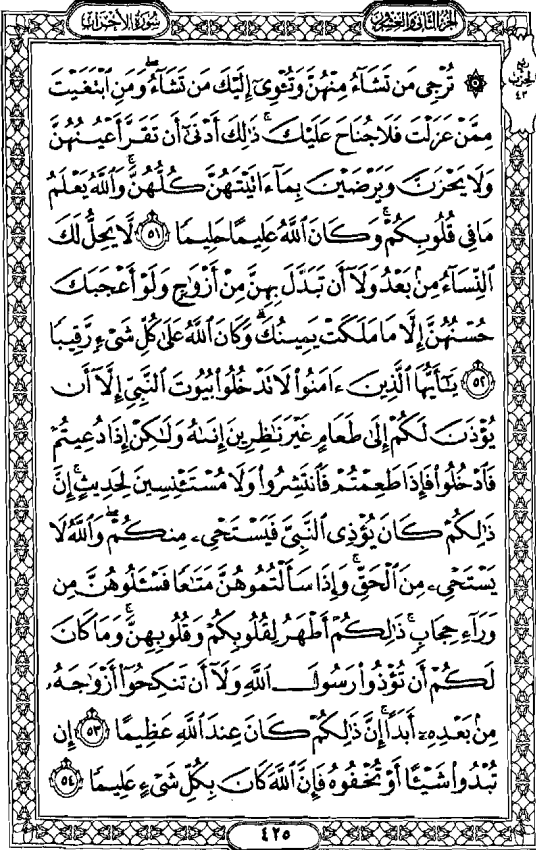 سُورَةُ الأَحْزَابِ
الجُزْءُ الثَّانِي وَالعِشْرُونَ
رُبْعُ
الحِزْبِ
٤٣
۞ تُرْجِى مَن تَشَآءُ مِنْهُنَّ وَتُـْٔوِىٓ إِلَيْكَ مَن تَشَآءُۖ وَمَنِ ٱبْتَغَيْتَ
مِمَّنْ عَزَلْتَ فَلَا جُنَاحَ عَلَيْكَۚ ذَٰلِكَ أَدْنَىٰٓ أَن تَقَرَّ أَعْيُنُهُنَّ
وَلَا يَحْزَنَّ وَيَرْضَيْنَ بِمَآ ءَاتَيْتَهُنَّ كُلُّهُنَّۚ وَٱللَّهُ يَعْلَمُ
مَا فِى قُلُوبِكُمْۚ وَكَانَ ٱللَّهُ عَلِيمًا حَلِيمًا ٥١ لَّا يَحِلُّ لَكَ
ٱلنِّسَآءُ مِنۢ بَعْدُ وَلَآ أَن تَبَدَّلَ بِهِنَّ مِنْ أَزْوَٰجٍ وَلَوْ أَعْجَبَكَ
حُسْنُهُنَّ إِلَّا مَا مَلَكَتْ يَمِينُكَۗ وَكَانَ ٱللَّهُ عَلَىٰ كُلِّ شَىْءٍ رَّقِيبًا
٥٢ يَٰٓأَيُّهَا ٱلَّذِينَ ءَامَنُوا۟ لَا تَدْخُلُوا۟ بُيُوتَ ٱلنَّبِىِّ إِلَّآ أَن
يُؤْذَنَ لَكُمْ إِلَىٰ طَعَامٍ غَيْرَ نَٰظِرِينَ إِنَىٰهُ وَلَٰكِنْ إِذَا دُعِيتُمْ
فَٱدْخُلُوا۟ فَإِذَا طَعِمْتُمْ فَٱنتَشِرُوا۟ وَلَا مُسْتَـْٔنِسِينَ لِحَدِيثٍۚ إِنَّ
ذَٰلِكُمْ كَانَ يُؤْذِى ٱلنَّبِىَّ فَيَسْتَحْىِۦ مِنكُمْۖ وَٱللَّهُ لَا
يَسْتَحْىِۦ مِنَ ٱلْحَقِّۚ وَإِذَا سَأَلْتُمُوهُنَّ مَتَٰعًا فَسْـَٔلُوهُنَّ مِن
وَرَآءِ حِجَابٍۚ ذَٰلِكُمْ أَطْهَرُ لِقُلُوبِكُمْ وَقُلُوبِهِنَّۚ وَمَا كَانَ
لَكُمْ أَن تُؤْذُوا۟ رَسُولَ ٱللَّهِ وَلَآ أَن تَنكِحُوٓا۟ أَزْوَٰجَهُۥ
مِنۢ بَعْدِهِۦٓ أَبَدًاۚ إِنَّ ذَٰلِكُمْ كَانَ عِندَ ٱللَّهِ عَظِيمًا ٥٣ إِن
تُبْدُوا۟ شَيْـًٔا أَوْ تُخْفُوهُ فَإِنَّ ٱللَّهَ كَانَ بِكُلِّ شَىْءٍ عَلِيمًا ٥٤
٤٢٥